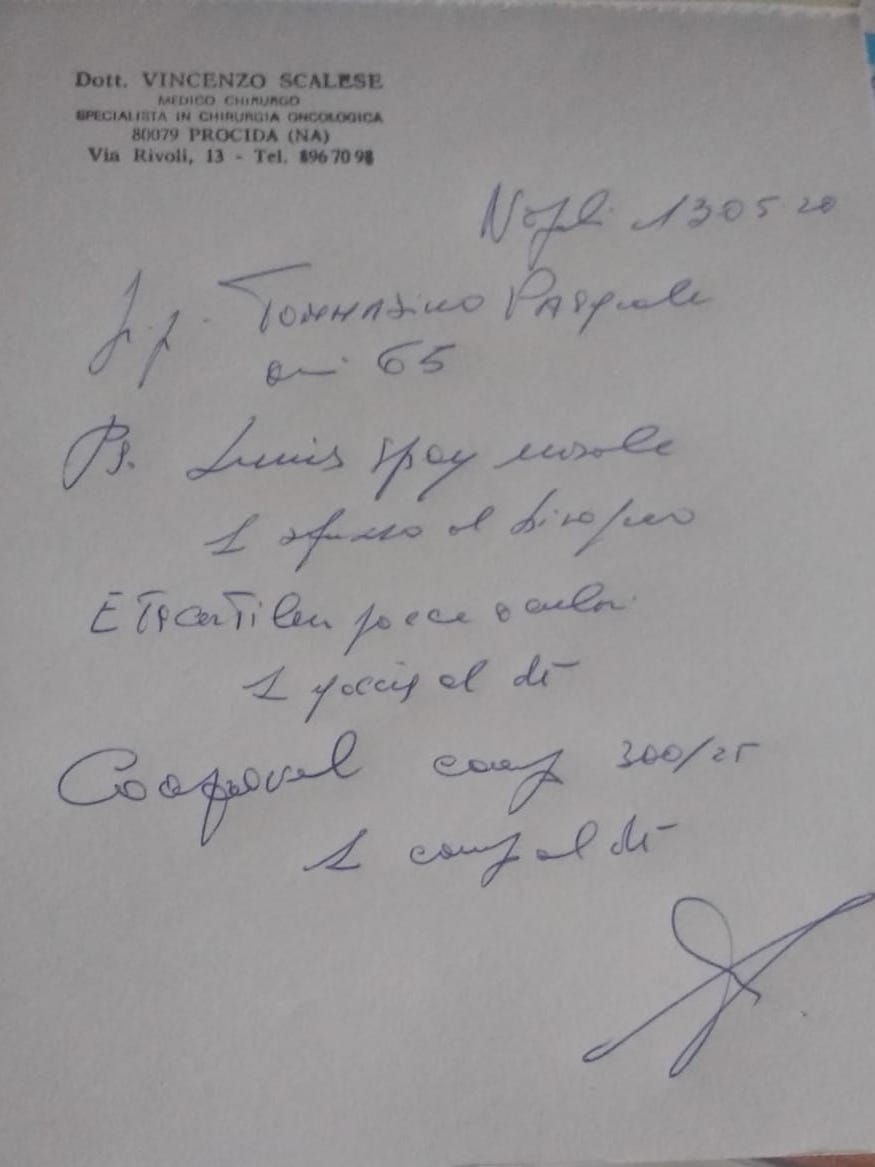 Dott. VINCENZO SCALESE
MEDICO CHIRURGO
SPECIALISTA IN CHIRURGIA ONCOLOGICA
80079 PROCIDA (NA)
Via Rivoli, 13 - Tel. 896 70 98
Napoli 13 05 20
TOMMASINO PASquale
anni 65
spray nasale
1 spruzzo al bisogno
gocce oculari
1 goccia al dì
Coaprovel comp 300/25
1 comp al dì